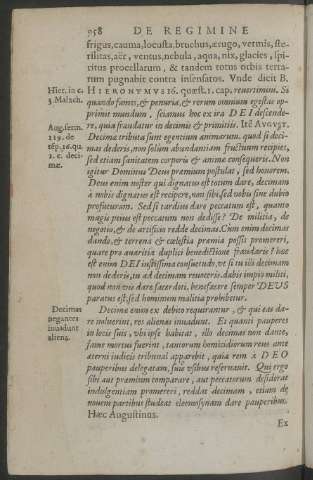 958 DE REGIMINE
frigus, cauma, locusta, bruchus, ærugo, vermis, ste-
rilitas, aër, ventus, nebula, aqua, nix, glacies, spi-
ritus procellarum, & tandem totus orbis terra-
rum pugnabit contra insensatos. Vnde dicit B.
Hier. in c.
3. Malach.
HIERONYMVS 16. quæst. 1. cap. reuertimini. Si
quando fames, & penuria, & rerum omnium egestas op-
primit mundum, sciamus hoc ex ira DEI descende-
re, quia fraudatur in decimis & primitiis. Itē AVGVST.
Aug. serm.
219. de
tēp. 16. qu.
1. c. deci-
mæ.
Decimæ tributa sunt egentium animarum. quod si deci-
mas dederis, non solùm abundantiam fructuum recipies,
sed etiam sanitatem corporis & animæ consequeris. Non
igitur Dominus Deus præmium postulat, sed honorem.
Deus enim noster qui dignatus est totum dare, decimam
à nobis dignatur est recipere, non sibi, sed nobis sine dubio
profuturam. Sed si tardiùs dare peccatum est, quanto
magis peius est peccatum non dedisse? De militia, de
negotio, & de artificio redde decimas. Cùm enim decimas
dando, & terrena & cælestia præmia possis promereri,
quare pro auaritia duplici benedictione fraudaris? hoc
est enim DEI iustissima consuetudo, vt si tu illi decimam
non dederis, tu ad decimam reuoceris. dabis impio militi,
quod non vis dare sacerdoti. benefacere semper DEVS
paratus est, sed hominum malitia prohibetur.
Decimas
negantes
inuadunt
aliena.
Decimæ enim ex debito requirantur, & qui eas da-
re noluerint, res alienas inuadunt. Et quanti pauperes
in locis suis, vbi ipse habitat, illi decimas non dante,
fame mortui fuerint, tantorum homicidiorum reus ante
æterni iudicis tribunal apparebit, quia rem à DEO
pauperibus delegatam, suis vsibus reseruauit. Qui ergo
sibi aut præmium comparare, aut peccatorum desiderat
indulgentiam promereri, reddat decimam, etiam de
nouem partibus studeat eleemosynam dare pauperibus.
Hæc Augustinus.
Ex